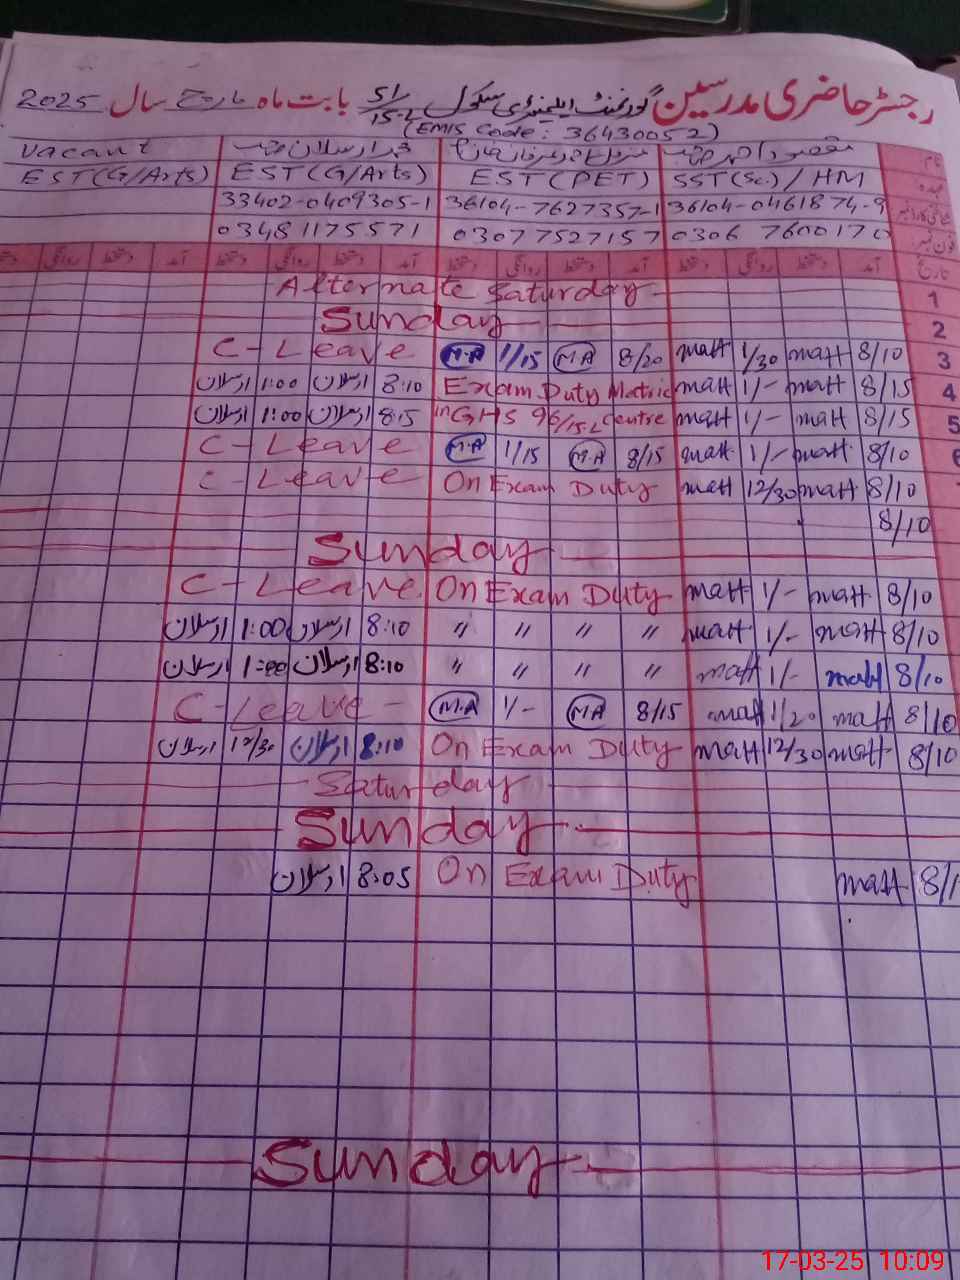 رجسٹر حاضری مدرسین گورنمنٹ ایلیمنٹری سکول 51/15-L بابت ماہ مارچ سال 2025
(EMIS Code: 36430052)
نام مقصود احمد Vacant
عہدہ SST(Sc.)/HM EST(PET) EST(G/Arts) EST(G/Arts)
شناختی کارڈ نمبر 36104-0461874-9 36104-7627357-1 33402-0409305-1
فون نمبر 0306 7600170 03077527157 03481175571
تاریخ آمد دستخط روانگی دستخط آمد دستخط روانگی دستخط آمد دستخط روانگی دستخط آمد دستخط روانگی دستخط
1 Alternate Saturday
2 Sunday
3 8/10 matt 1/30 matt 8/20 M.A 1/15 M.A C-Leave
4 8/15 matt 1/- matt Exam Duty Matric 8:10 ارسلان 1:00 ارسلان
5 8/15 matt 1/- matt in GHS 96/15-L Centre 8:15 ارسلان 1:00 ارسلان
6 8/10 matt 1/- matt 8/15 M.A 1/15 M.A C-Leave
8/10 matt 12/30 matt On Exam Duty C-Leave
8/10
Sunday
8/10 matt 1/- matt On Exam Duty C-Leave
8/10 matt 1/- matt " " " " 8:10 ارسلان 1:00 ارسلان
8/10 matt 1/- matt " " " " 8:10 ارسلان 1:00 ارسلان
8/10 matt 1/20 matt 8/15 M.A 1/- M.A C-Leave
8/10 matt 12/30 matt On Exam Duty 8:10 ارسلان 12/30 ارسلان
Saturday
Sunday
8/1 matt On Exam Duty 8:05 ارسلان
Sunday
17-03-25 10:09